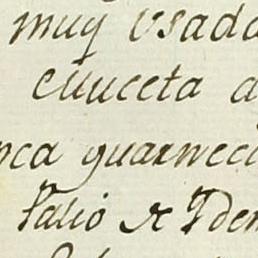 muy usada
cuuceta a
nca guarneci
Falio & Ydem